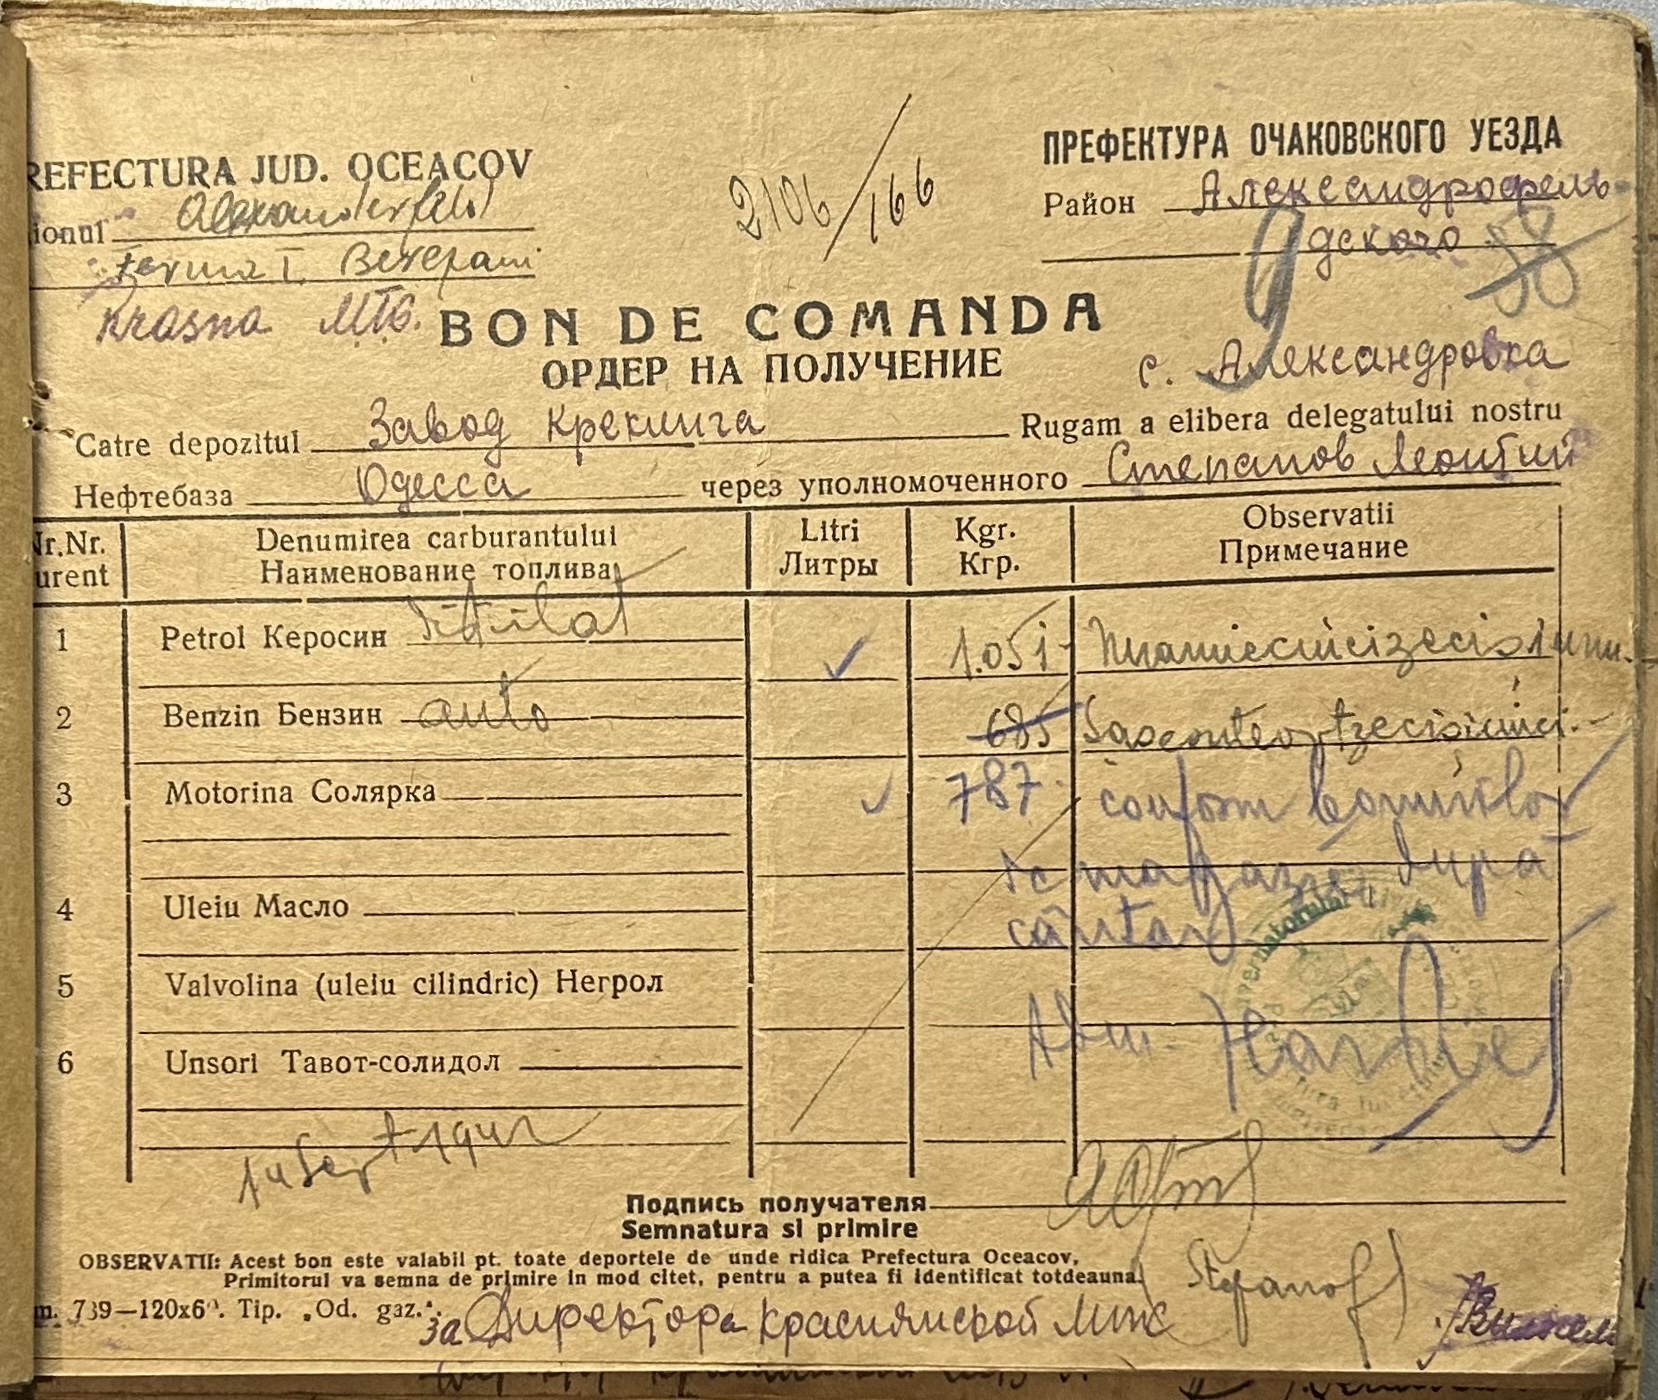 REFECTURA JUD. OCEACOV
ionul Alexanderfeld
ferma I
Krasna МТС.
2106/166
ПРЕФЕКТУРА ОЧАКОВСКОГО УЕЗДА
Район Александрофель-
дского 38
9
с. Александровка
BON DE COMANDA
ОРДЕР НА ПОЛУЧЕНИЕ
Catre depozitul Завод Крекинга Rugam a elibera delegatului nostru
Нефтебаза Одесса через уполномоченного Степанов Леонтий
Nr.Nr. Denumirea carburantului Litri Kgr. Observatii
urent Наименование топлива Литры Кгр. Примечание
1 Petrol Керосин 1.051
2 Benzin Бензин auto 685
3 Motorina Солярка 787 conform bonurilor
de magazie după
4 Uleiu Масло
cântar
5 Valvolina (uleiu cilindric) Негрол
6 Unsori Тавот-солидол
Подпись получателя
Semnatura si primire
OBSERVATII: Acest bon este valabil pt. toate deportele de unde ridica Prefectura Oceacov,
Primitorul va semna de primire in mod citet, pentru a putea fi identificat totdeauna.
Stefanoff
m. 739—120x6°. Tip. „Od. gaz.".
за Директора Краснянской МТС